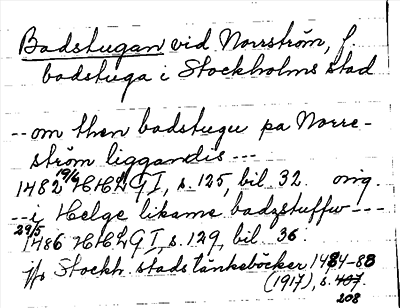 Badstugan vid Norrström, f.
badstuga i Stockholms stad
-- om then badstugu pa Norre-
ström liggandis ---
1482 19/6 HHLG I, s. 125, bil 32. orig.
-- i Helge likame badzstuffw ---
29/5 1486 HHLG I, s. 129, bil 36.
Jfr Stockh. stads tänkeböcker 1484-88
(1917), s. 407.
208